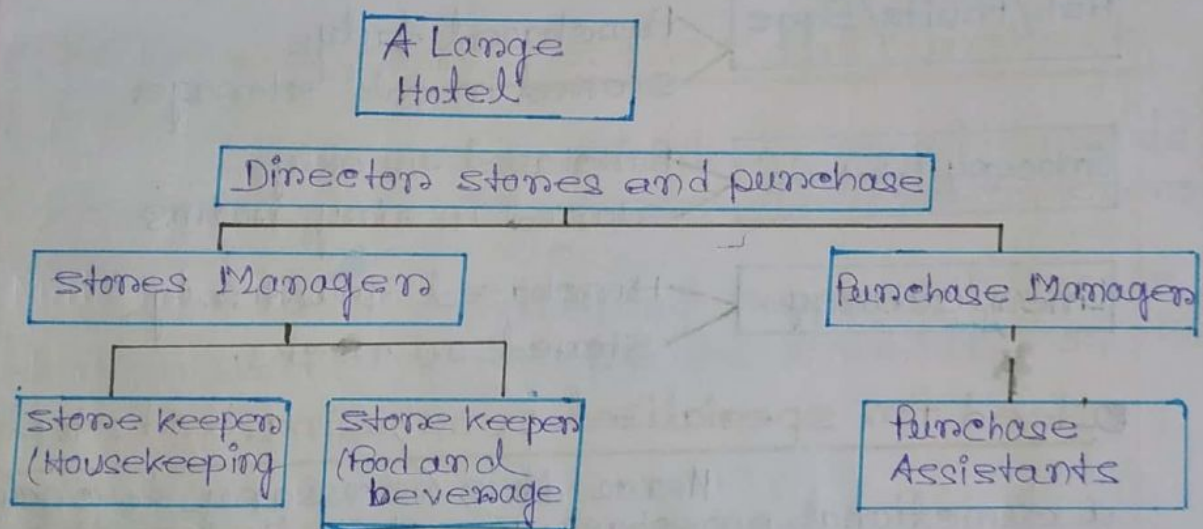 A Large
Hotel
Director stores and purchase
Stores Manager
Purchase Manager
Store keeper
(Housekeeping
Store keeper
(Food and
beverage
Purchase
Assistants